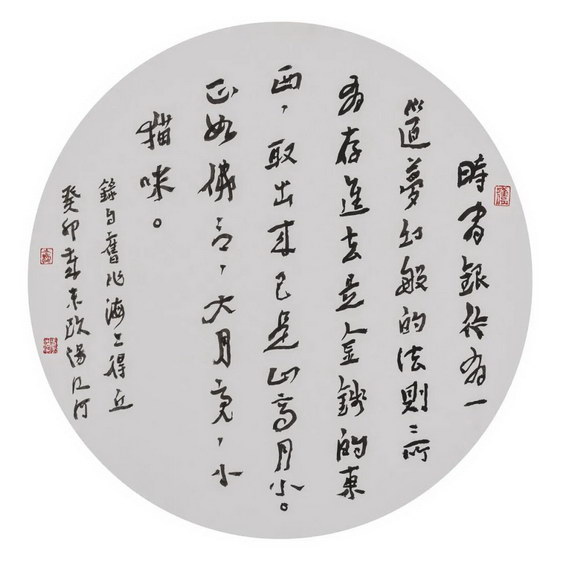 時間銀行有一
道夢幻般的法則：所
有存進去是金錢的東
西，取出來已是山高月小。
正如佛言，大月亮，小
猫咪。
錄自舊作海上得丘
癸卯年末歐陽江河